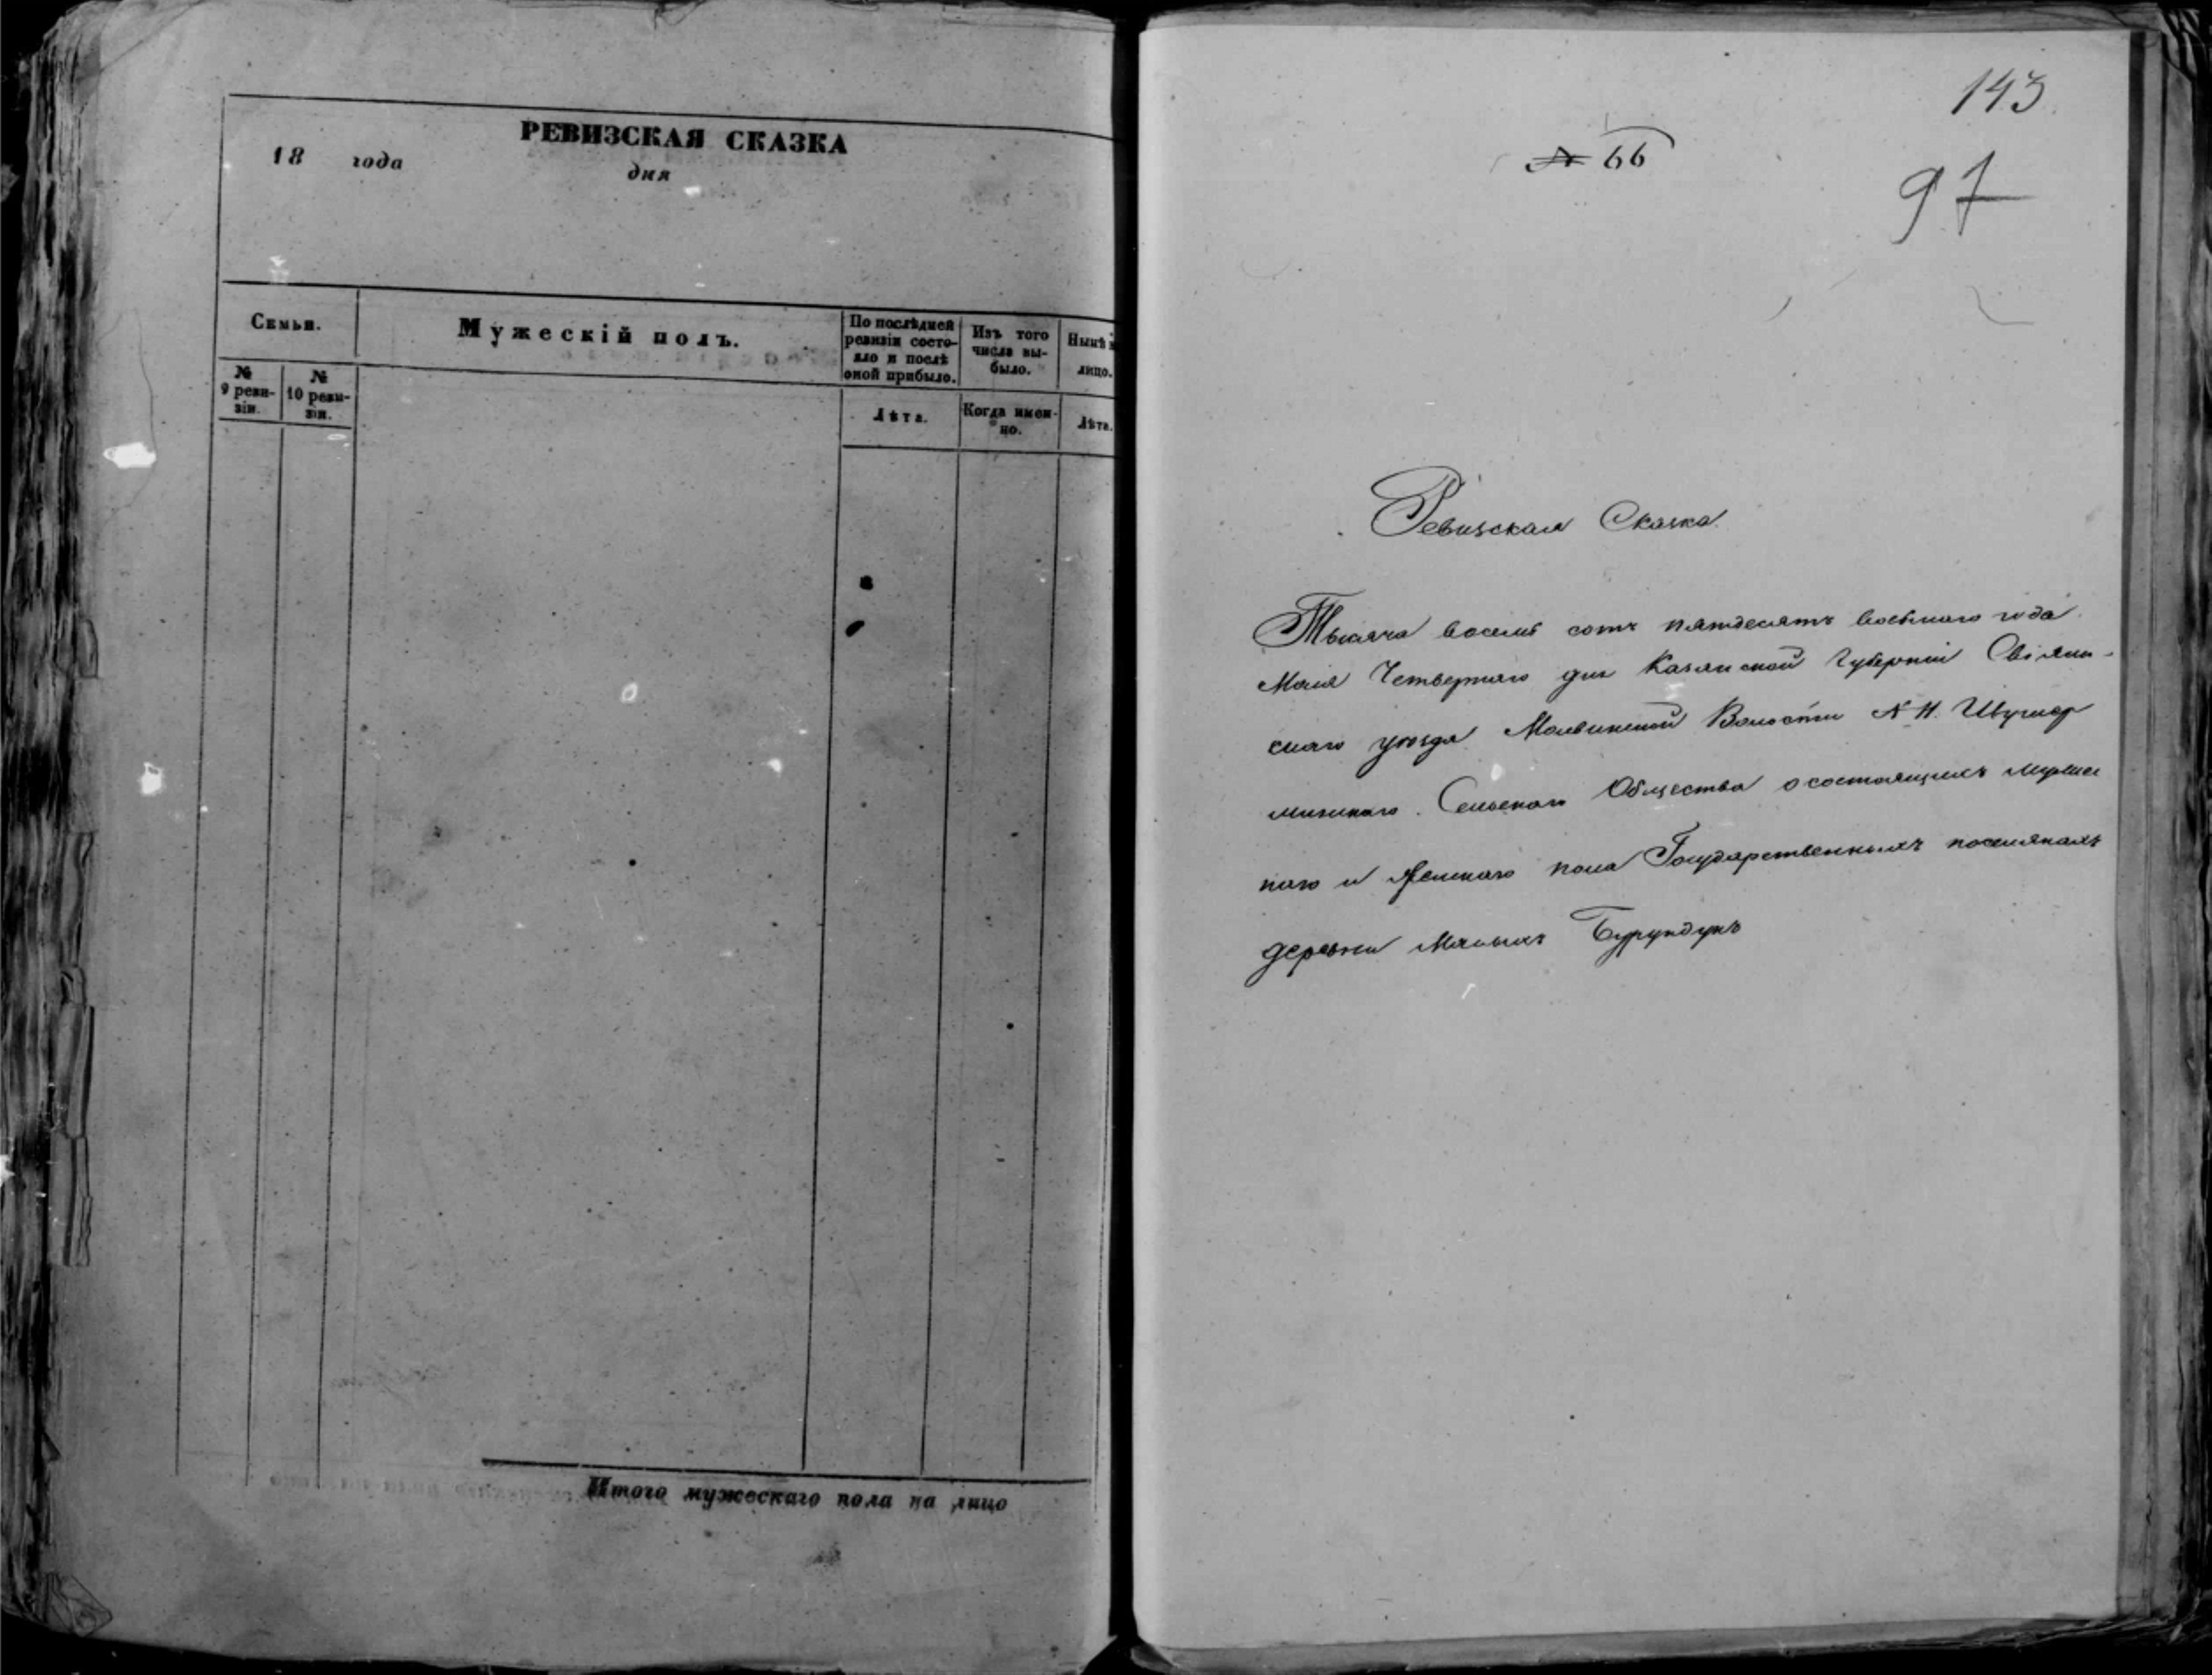 РЕВИЗСКАЯ СКАЗКА
18 года дня
Семьи.
Мужескій полъ.
По послѣдней
ревизіи состо-
яло и послѣ
оной прибыло.
Изъ того
числа вы-
было.
Нынѣ н
лицо.
№
9 реви-
зіи.
№
10 реви-
зіи.
Лѣта.
Когда имен-
но.
Лѣта.
Итого мужескаго пола на лицо
143
№ 66
97
Ревизская Сказка
Тысяча восемь сотъ пятдесятъ восьмаго года
Маія Четвертаго дня Казанской Губерніи Свіяж-
скаго уѣзда Волости № 11
Сельскаго Общества о состоящихъ мужес
каго и женскаго пола Государственныхъ поселянахъ
деревни Малыхъ Бурундукъ